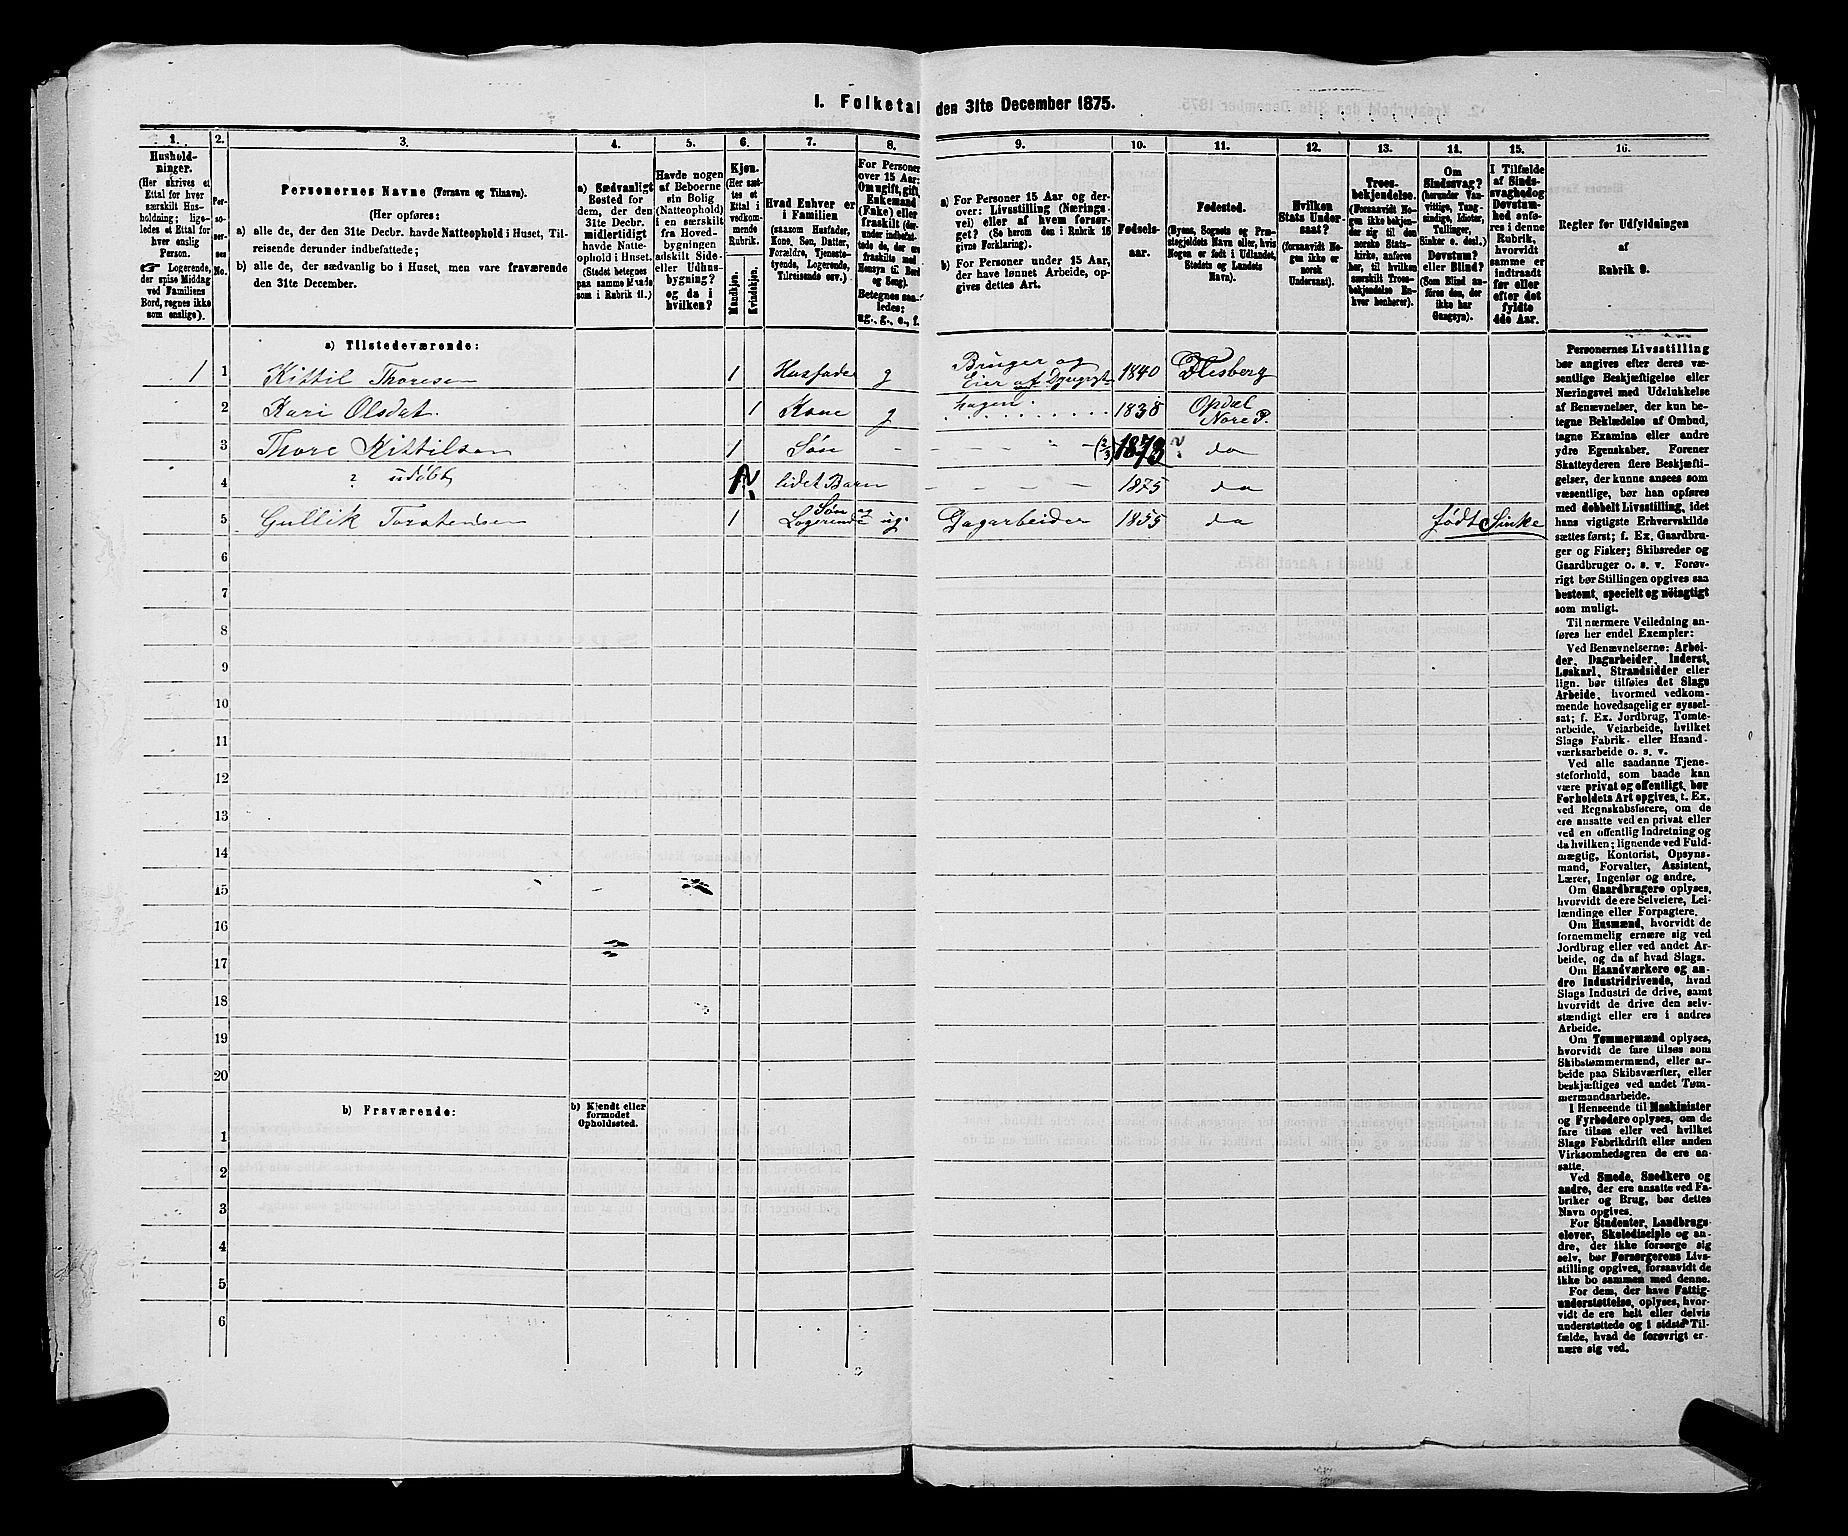 I. Folketal den 31te December 1875.
1.
2.
3.
4.
5.
6.
7.
8.
9.
10.
11.
12.
13.
14.
15.
16.
Hushold-
ninger.
(Her skrives et
Ettal for hver
særskilt Hus-
holdning; lige-
ledes et Ettal for
hver enslig
Person.
☞ Logerende,
der spise Middag
ved Familiens
Bord, regnes ikke
som enslige).
Per-
so-
ner-
nes
No.
Personernes Navne (Fornavn og Tilnavn).
(Her opføres:
a) alle de, der den 31te Decbr. havde Natteophold i Huset, Til-
reisende derunder indbefattede;
b) alle de, der sædvanlig bo i Huset, men vare fraværende
den 31te December.
a) Sædvanligt
Bosted for
dem, der den
31te Decbr.
midlertidigt
havde Natte-
ophold i Huset.
(Stedet betegnes
paa samme Maade
som i Rubrik 11.)
Havde nogen
af Beboerne
sin Bolig
(Natteophold)
i en særskilt
fra Hoved-
bygningen
adskilt Side-
eller Udhus-
bygning?
og da i
hvilken?
Kjøn.
(Her sæt-
tes et
Ettal i
vedkom-
mende
Rubrik.
Mandkjøn.
Kvindekjøn.
Hvad Enhver er
i Familien
(saasom Husfader,
Kone, Søn, Datter,
Forældre, Tjeneste-
tyende, Logerende,
Tilreisende osv.)
For Personer
over 15 Aar:
Om ugift, gift,
Enkemand
(Enke) eller
fraskilt (der-
under indbefat-
tede de, der ere
fraskilte med
Hensyn til Bord
og Seng).
Betegnes saa-
ledes:
ug., g., e., f.
a) For Personer 15 Aar og der-
over: Livsstilling (Nærings-
vei) eller af hvem forsør-
get? (Se herom den i Rubrik 16
givne Forklaring).
b) For Personer under 15 Aar,
der have lønnet Arbeide, op-
gives dettes Art.
Fødsels-
aar.
Fødested.
(Byens, Sognets og Præ-
stegjeldets Navn eller, hvis
Nogen er født i Udlandet,
Stedets og Landets
Navn).
Hvilken
Stats Under-
saat?
(forsaavidt No-
gen ikke er
norsk
Undersaat).
Troes-
bekjendelse.
(Forsaavidt No-
gen ikke bekjen-
der sig til den
norske Stats-
kirke, anføres
her, til hvilken
særskilt Troes-
bekjendelse En-
hver henhører).
Om
Sindssvag?
(herunder Van-
vittige, Tung-
sindige, Idioter,
Tullinger,
Sinker o. desl.)
Døvstum?
eller Blind?
(Som Blind an-
føres den, der
ikke har
Gangsyn).
I Tilfælde
af Sinds-
svaghed og
Døvstum-
hed anfø-
res i denne
Rubrik,
hvorvidt
samme er
indtraadt
før eller
efter det
fyldte
4de Aar.
Regler for Udfyldningen
af
Rubrik 9.
a) Tilstedeværende:
1 1 Kittil Thoresen 1 Husfader g Bruger og Eier af 1840 Flesberg
2 Kari Olsdat. 1 Kone g hagen 1838 Opdal Nore P.
3 Thore Kittilsen 1 Søn (2/3) 1873 ? da
4 ? udøbt 1 ? lidet Barn 1875 da
5 Gullik Torstensen 1 Søn og Logerende ug. Dagarbeider 1855 da født Sinke
6
7
8
9
10
11
12
13
14
15
16
17
18
19
20
b) Fraværende:
b) Kjendt eller
formodet
Opholdssted.
1
2
3
4
5
6
Personernes Livsstilling
bør angives efter deres væ-
sentlige Beskjæftigelse eller
Næringsvei med Udelukkelse
af Benævnelser, der kun be-
tegne Beklædelse af Ombud,
tagne Examina eller andre
ydre Egenskaber. Forener
Skatteyderen flere Beskjæfti-
gelser, der kunne ansees som
væsentlige, bør han opføres
med dobbelt Livsstilling, idet
hans vigtigste Erhvervskilde
sættes først; f. Ex. Gaardbru-
ger og Fisker; Skibsreder og
Gaardbruger o. s. v. Forøv-
rigt bør Stillingen opgives saa
bestemt, specielt og nøiagtigt
som muligt.
Til nærmere Veiledning an-
føres her endel Exempler:
Ved Benævnelserne: Arbei-
der, Dagarbeider, Inderst,
Løskarl, Strandsidder eller
lign. bør tilføies det Slags
Arbeide, hvormed vedkom-
mende hovedsagelig er syssel-
sat; f. Ex. Jordbrug, Tomte-
arbeide, Veiarbeide, hvilket
Slags Fabrik- eller Haand-
værksarbeide o. s. v.
Ved alle saadanne Tjene-
steforhold, som baade kan
være privat og offentligt, bør
Forholdets Art opgives, t. Ex.
ved Regnskabsførere, om de
ere ansatte ved en privat eller
ved en offentlig Indretning og
da hvilken; lignende ved Fuld-
mægtig, Kontorist, Opsyns-
mand, Forvalter, Assistent,
Lærer, Ingeniør og andre.
Om Gaardbrugere oplyses,
hvorvidt de ere Selveiere, Lei-
lændinge eller Forpagtere.
Om Husmænd, hvorvidt de
fornemmelig ernære sig ved
Jordbrug eller ved andet Ar-
beide, og da af hvad Slags.
Om Haandværkere og an-
dre Industridrivende, hvad
Slags Industri de drive, samt
hvorvidt de drive den selv-
stændigt eller ere i andres
Arbeide.
Om Tømmermænd oplyses,
hvorvidt de fare tilsøs som
Skibstømmermænd, eller ar-
beide paa Skibsværfter, eller
beskjæftiges ved andet Tøm-
mermandsarbeide.
I Henseende til Maskinister
og Fyrbødere oplyses, om de
fare tilsøs eller ved hvilket
Slags Fabrikdrift eller anden
Virksomhedsgren de ere an-
satte.
Ved Smede, Snedkere og
andre, der ere ansatte ved Fa-
briker og Brug, bør dettes
Navn opgives.
For Studenter, Landbrugs-
elever, Skoledisciple og an-
dre, der ikke forsørge sig
selv, bør Forsørgerens Livs-
stilling opgives, forsaavidt de
ikke bo sammen med denne.
For dem, der have Fattig-
understøttelse, oplyses, hvor-
vidt de ere helt eller delvis
understøttede og i sidste Til-
fælde, hvad de forøvrigt er-
nære sig ved.